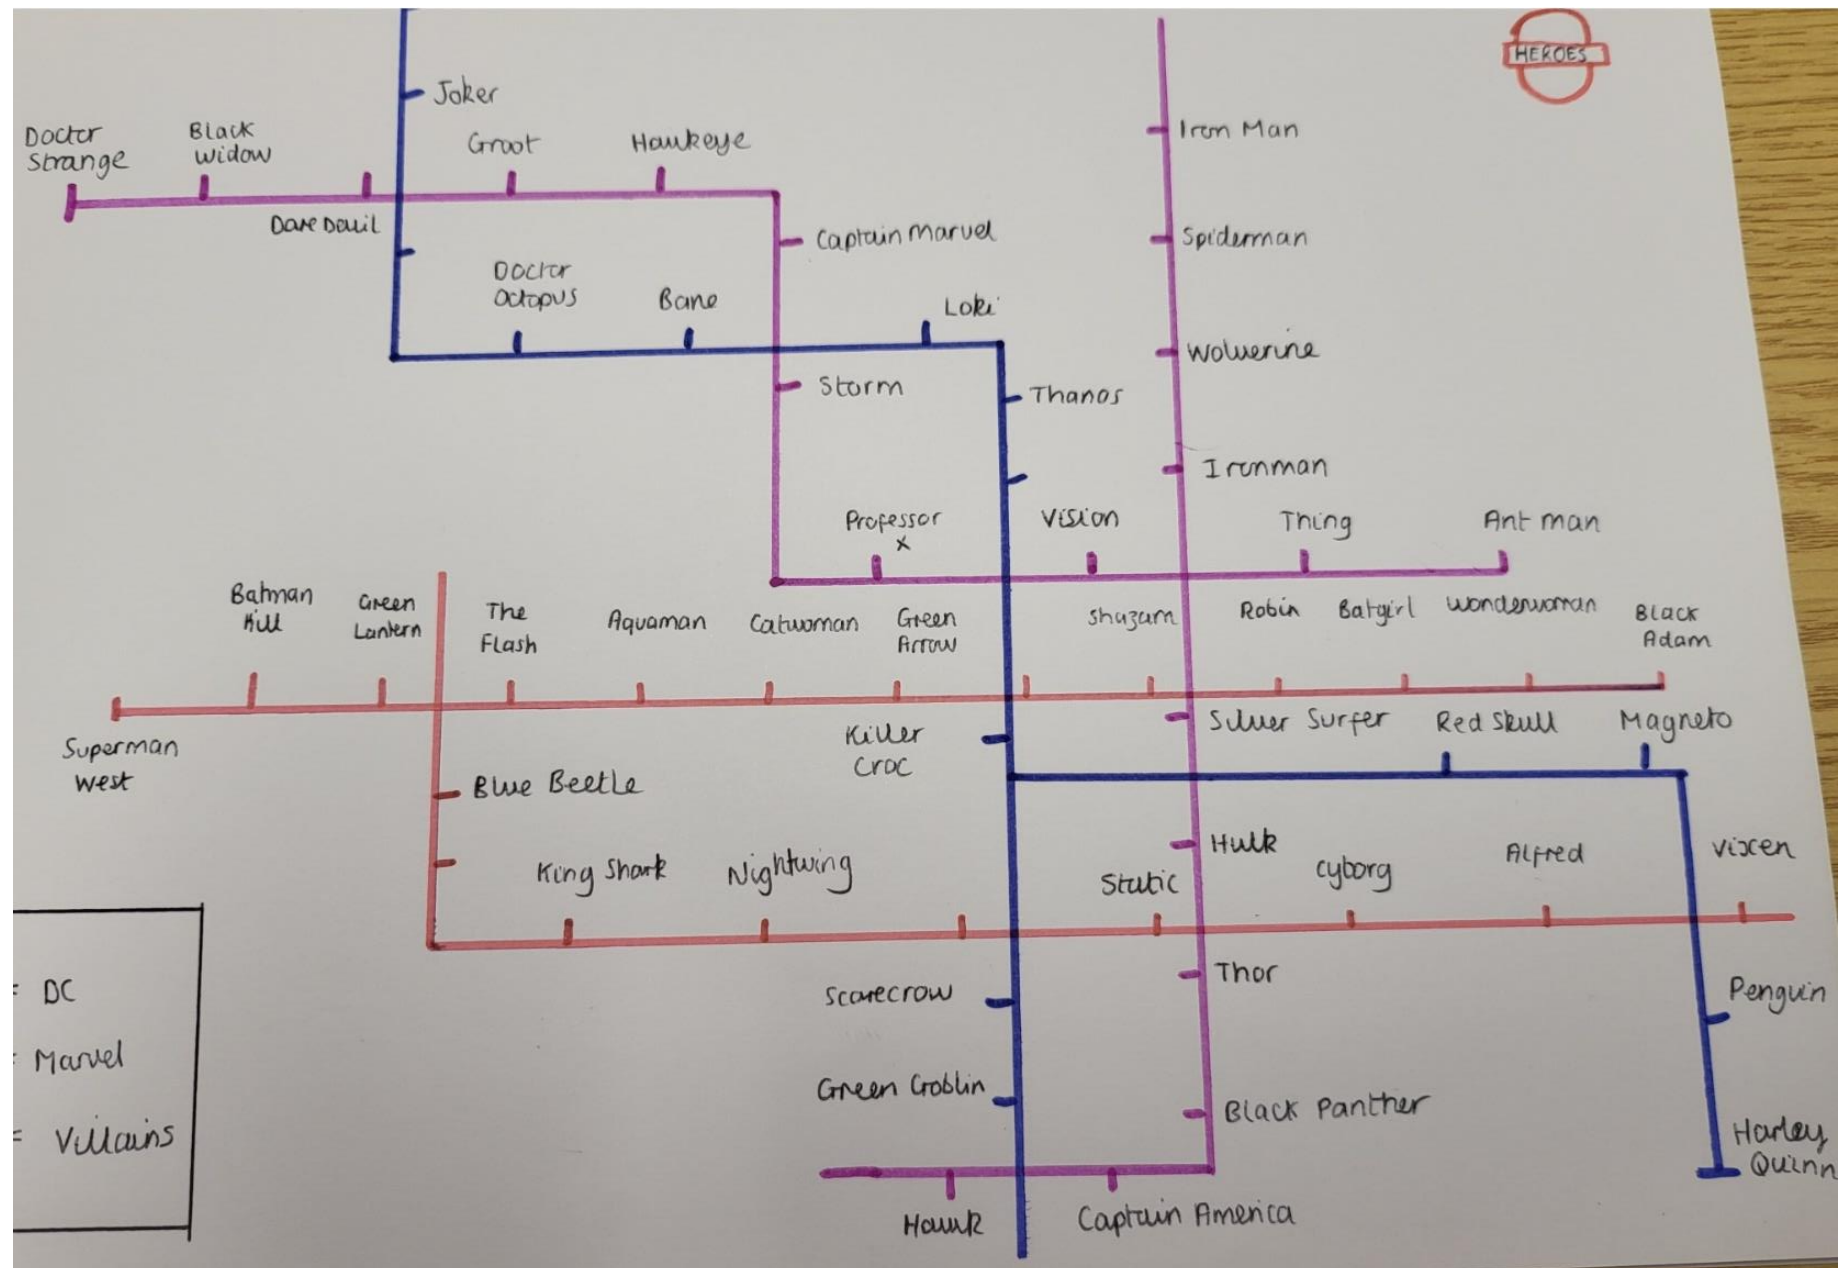 HEROES
Joker
Doctor
Strange
Black
Widow
Groot
Hawkeye
Iron Man
DareDevil
Captain Marvel
Spiderman
Doctor
Octopus
Bane
Loki
Storm
Thanos
Wolverine
Ironman
Professor
X
Vision
Thing
Ant man
Batman
Hill
Green
Lantern
The
Flash
Aquaman
Catwoman
Green
Arrow
Shazam
Robin
Batgirl
Wonderwoman
Black
Adam
Superman
West
Killer
Croc
Silver Surfer
Red Skull
Magneto
Blue Beetle
King Shark
Nightwing
Static
Hulk
Cyborg
Alfred
Vixen
= DC
= Marvel
= Villains
Scarecrow
Thor
Penguin
Green Goblin
Black Panther
Harley
Quinn
Hawk
Captain America